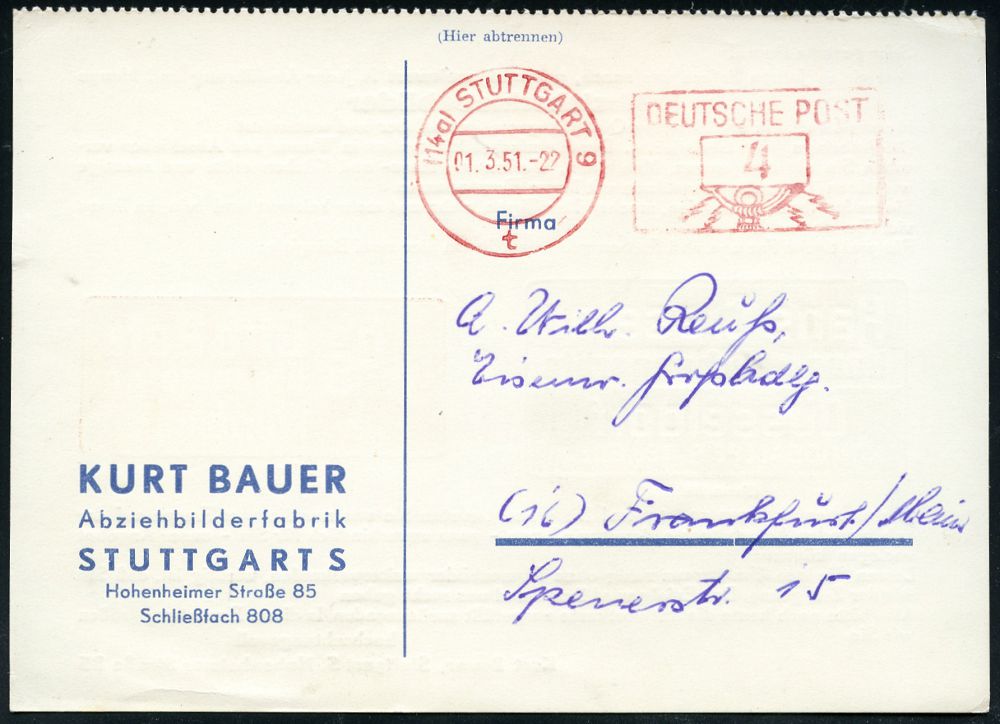 (Hier abtrennen)
(14a) STUTTGART 9
01. 3.51.-22
t
DEUTSCHE POST
4
Firma
A. Wilh. Reuß,
Eisenw. Großhdlg.
(16) Frankfurt/Main
Spenerstr. 15
KURT BAUER
Abziehbilderfabrik
STUTTGART S
Hohenheimer Straße 85
Schließfach 808